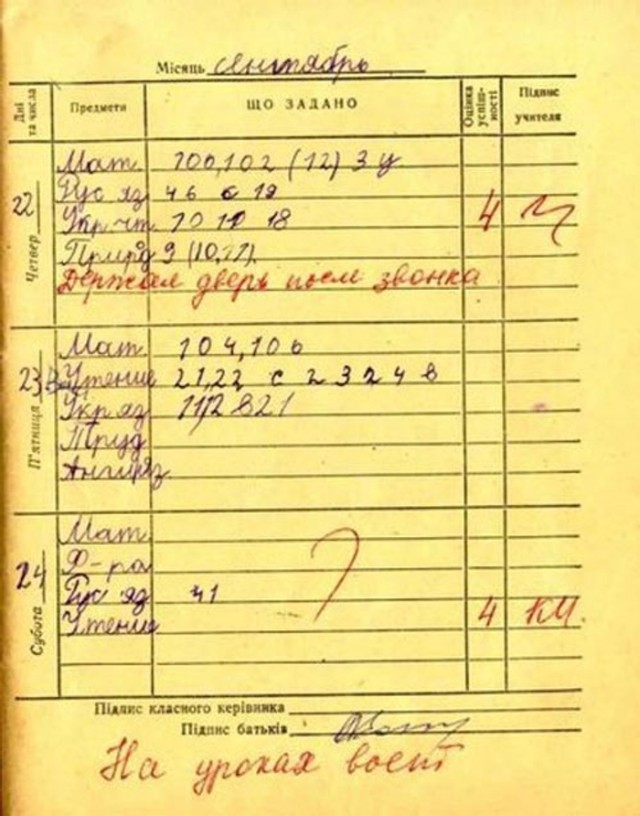 Місяць сентябрь
Дні та числа Предмети ЩО ЗАДАНО Оцінка успіш-ності Підпис учителя
22 Четвер
Мат. 100,102 (12) 3 у
Рус яз 46 с 19
Укр.чт. 10 11 18 4
Прирд 9 (10,11).
Держал дверь после звонка
23 П'ятница
Мат. 104,106
Чтение 21,22 с 23 24 в
Укр яз 112 в 21
Труд
Англ.яз.
24 Субота
Мат. ?
Ф-ра
Рус яз 41
Чтение 4 КМ.
Підпис класного керівника
Підпис батьків
На уроках воет